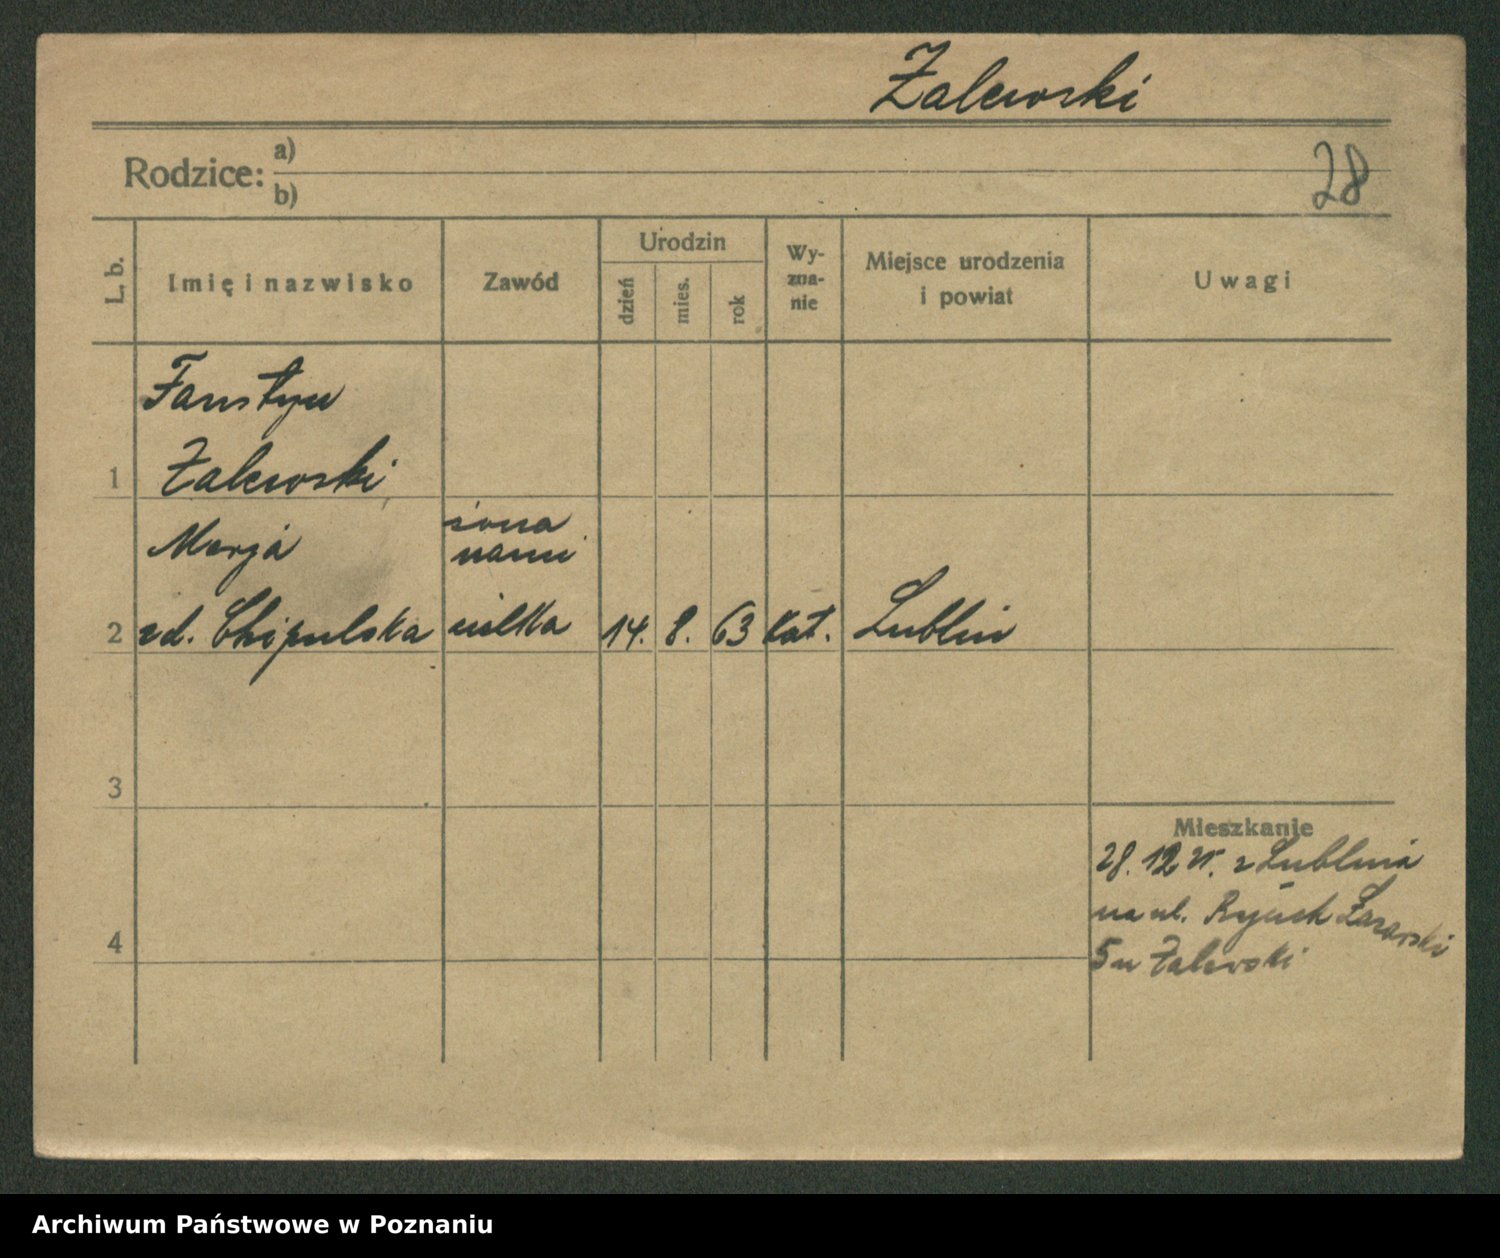 Zalewski
Rodzice: a)
b)
28
L. b.
Imię i nazwisko
Zawód
Urodzin
dzień
mies.
rok
Wy-
zna-
nie
Miejsce urodzenia
i powiat
Uwagi
Faustyn
1 Zalewski
Marja żona
2 zd. Chipulska 14. 8. 63 kat. Lublin
3
Mieszkanie
28. 12 z Lublina
na ul. Rynek Łazarski
4
5 u Zalewski
Archiwum Państwowe w Poznaniu